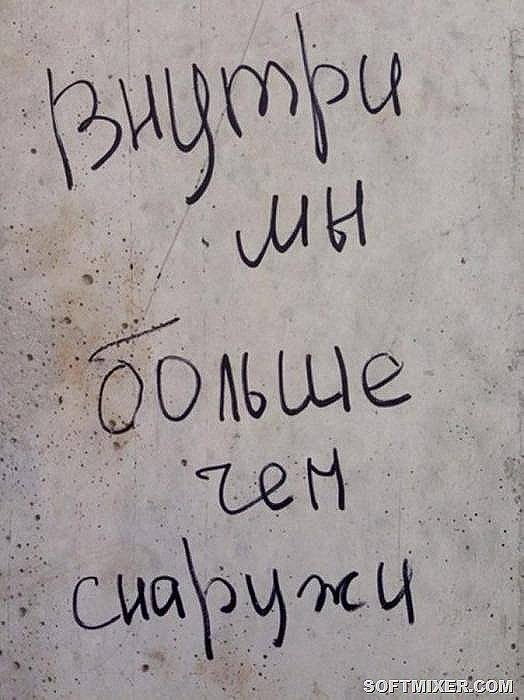 Внутри
мы
больше
чем
снаружи
SOFTMIXER.COM